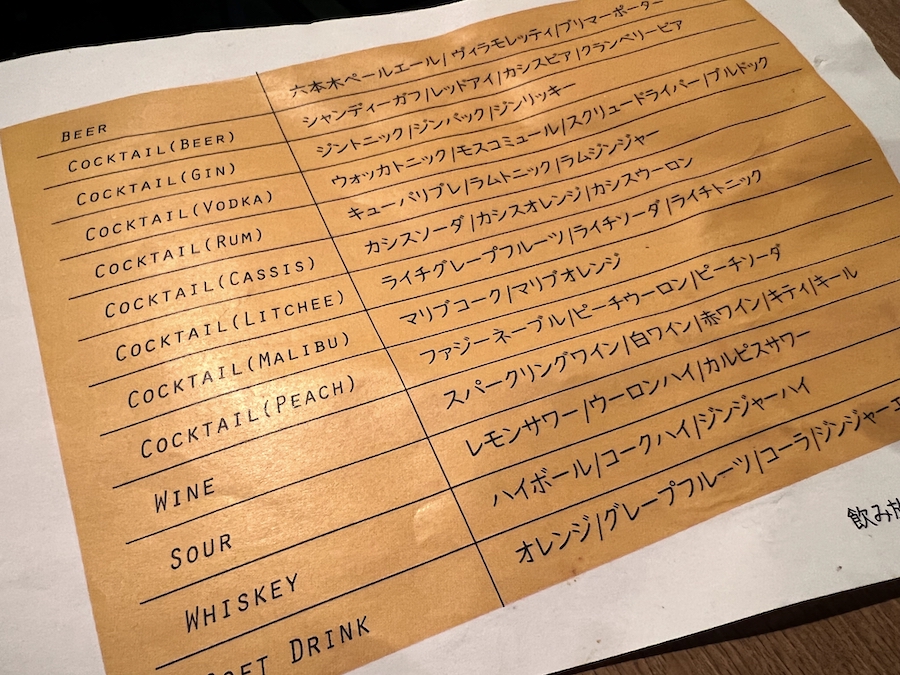 BEER 六本木ペールエール/ヴィラモレッティ/プリマーポーター
COCKTAIL(BEER) シャンディーガフ/レッドアイ/カシスビア/クランベリービア
COCKTAIL(GIN) ジントニック/ジンバック/ジンリッキー
COCKTAIL(VODKA) ウォッカトニック/モスコミュール/スクリュードライバー/ブルドック
COCKTAIL(RUM) キューバリブレ/ラムトニック/ラムジンジャー
COCKTAIL(CASSIS) カシスソーダ/カシスオレンジ/カシスウーロン
COCKTAIL(LITCHEE) ライチグレープフルーツ/ライチソーダ/ライチトニック
COCKTAIL(MALIBU) マリブコーク/マリブオレンジ
COCKTAIL(PEACH) ファジーネーブル/ピーチウーロン/ピーチソーダ
WINE スパークリングワイン/白ワイン/赤ワイン/キティ/キール
SOUR レモンサワー/ウーロンハイ/カルピスサワー
WHISKEY ハイボール/コークハイ/ジンジャーハイ
SOFT DRINK オレンジ/グレープフルーツ/コーラ/ジンジャーエ
飲み放